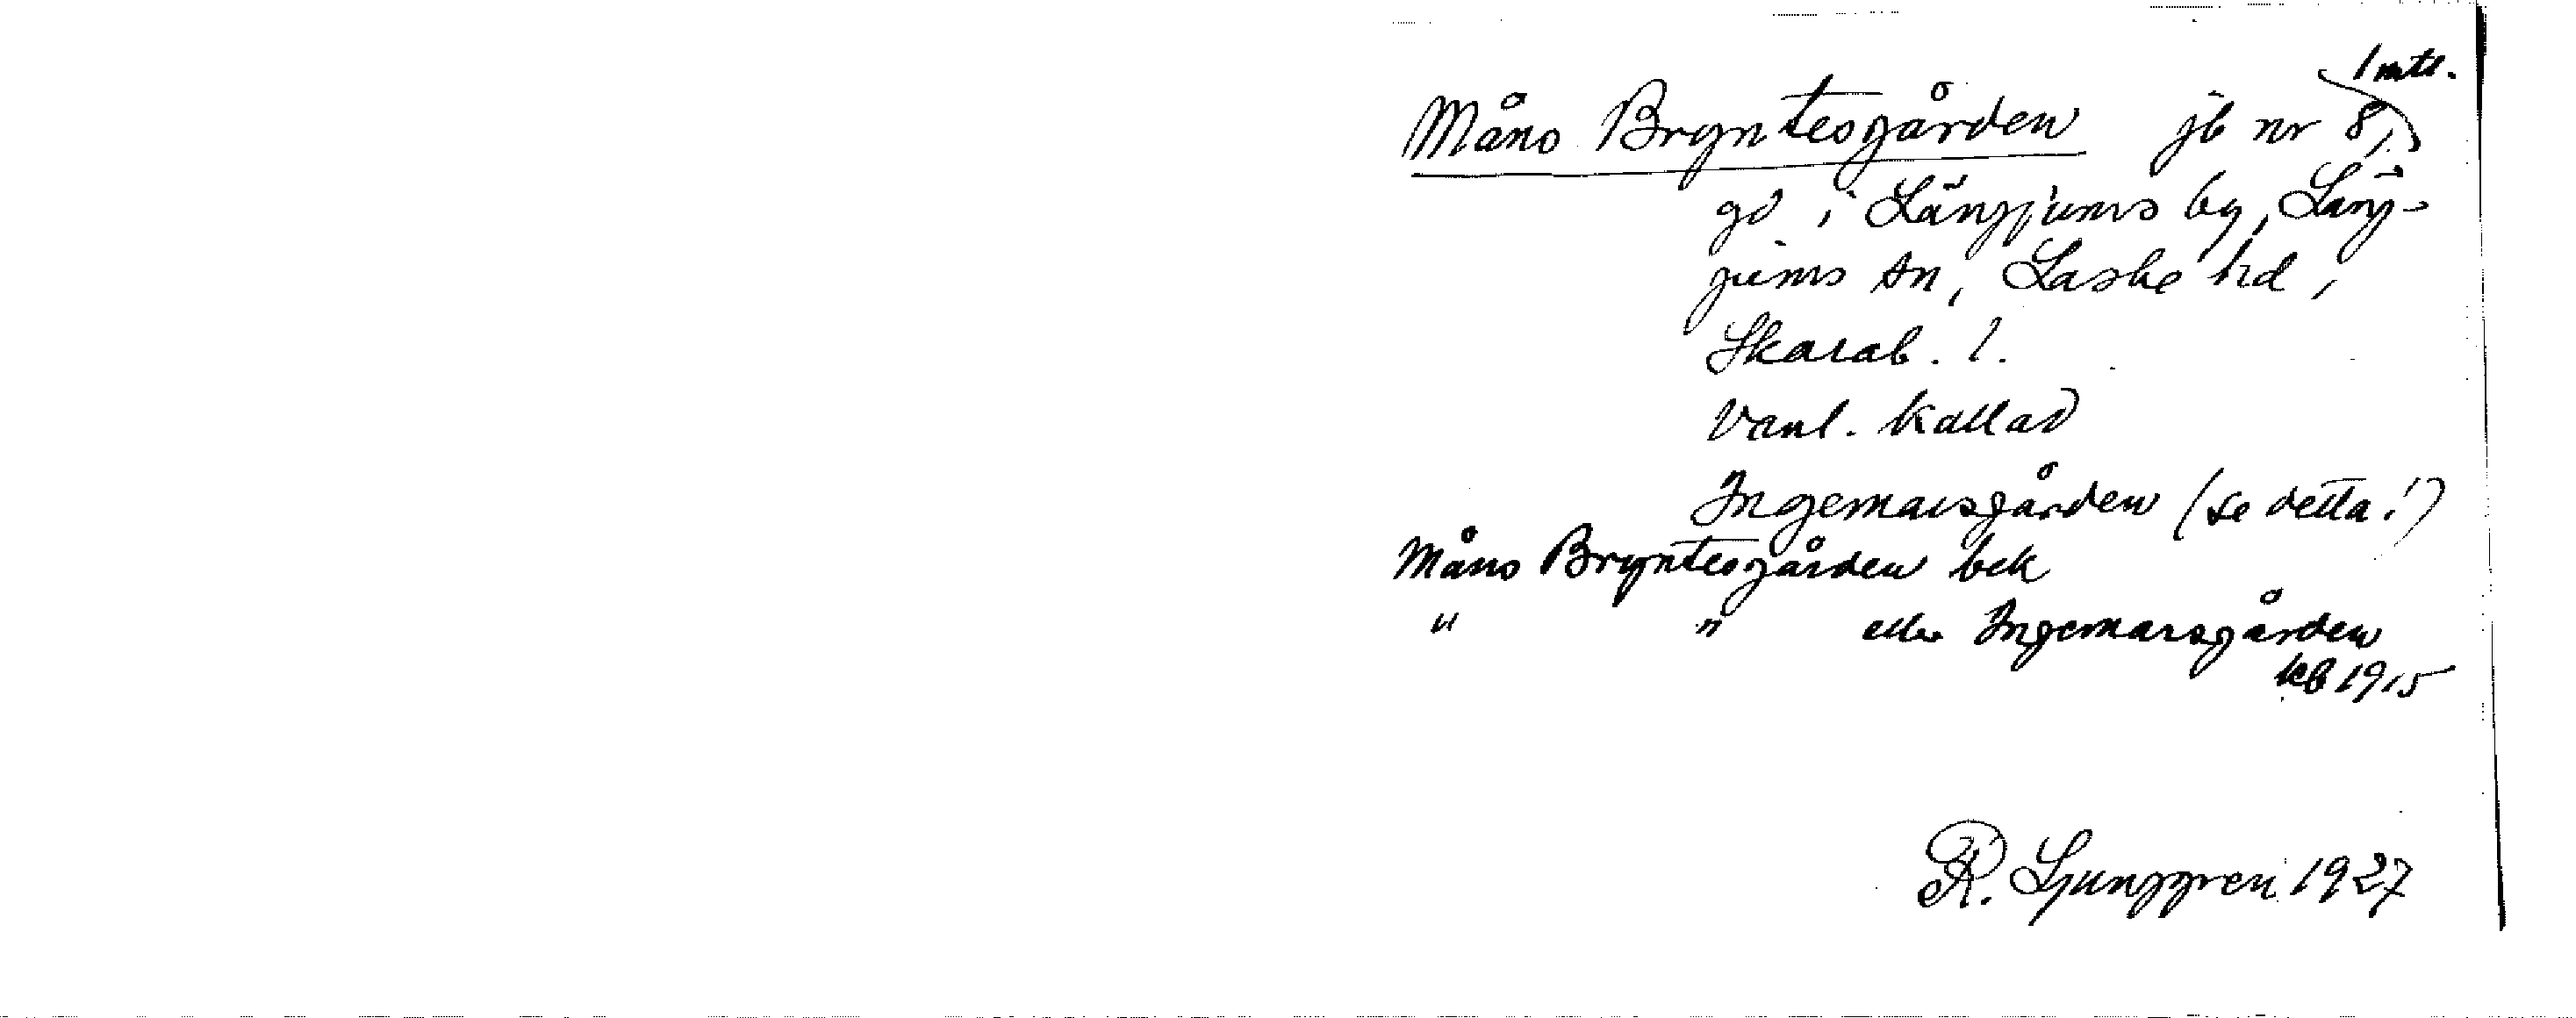 Måns Bryntesgården jb nr 8, 1 mtl.
gd i Längjums by, Läng-
jums sn, Laske hd,
Skarab. l.
Vanl. kallad
Ingemarsgården (se detta!)
Måns Bryntesgården bek
" " eller Ingemarsgården
kb 1915
R. Ljunggren 1927